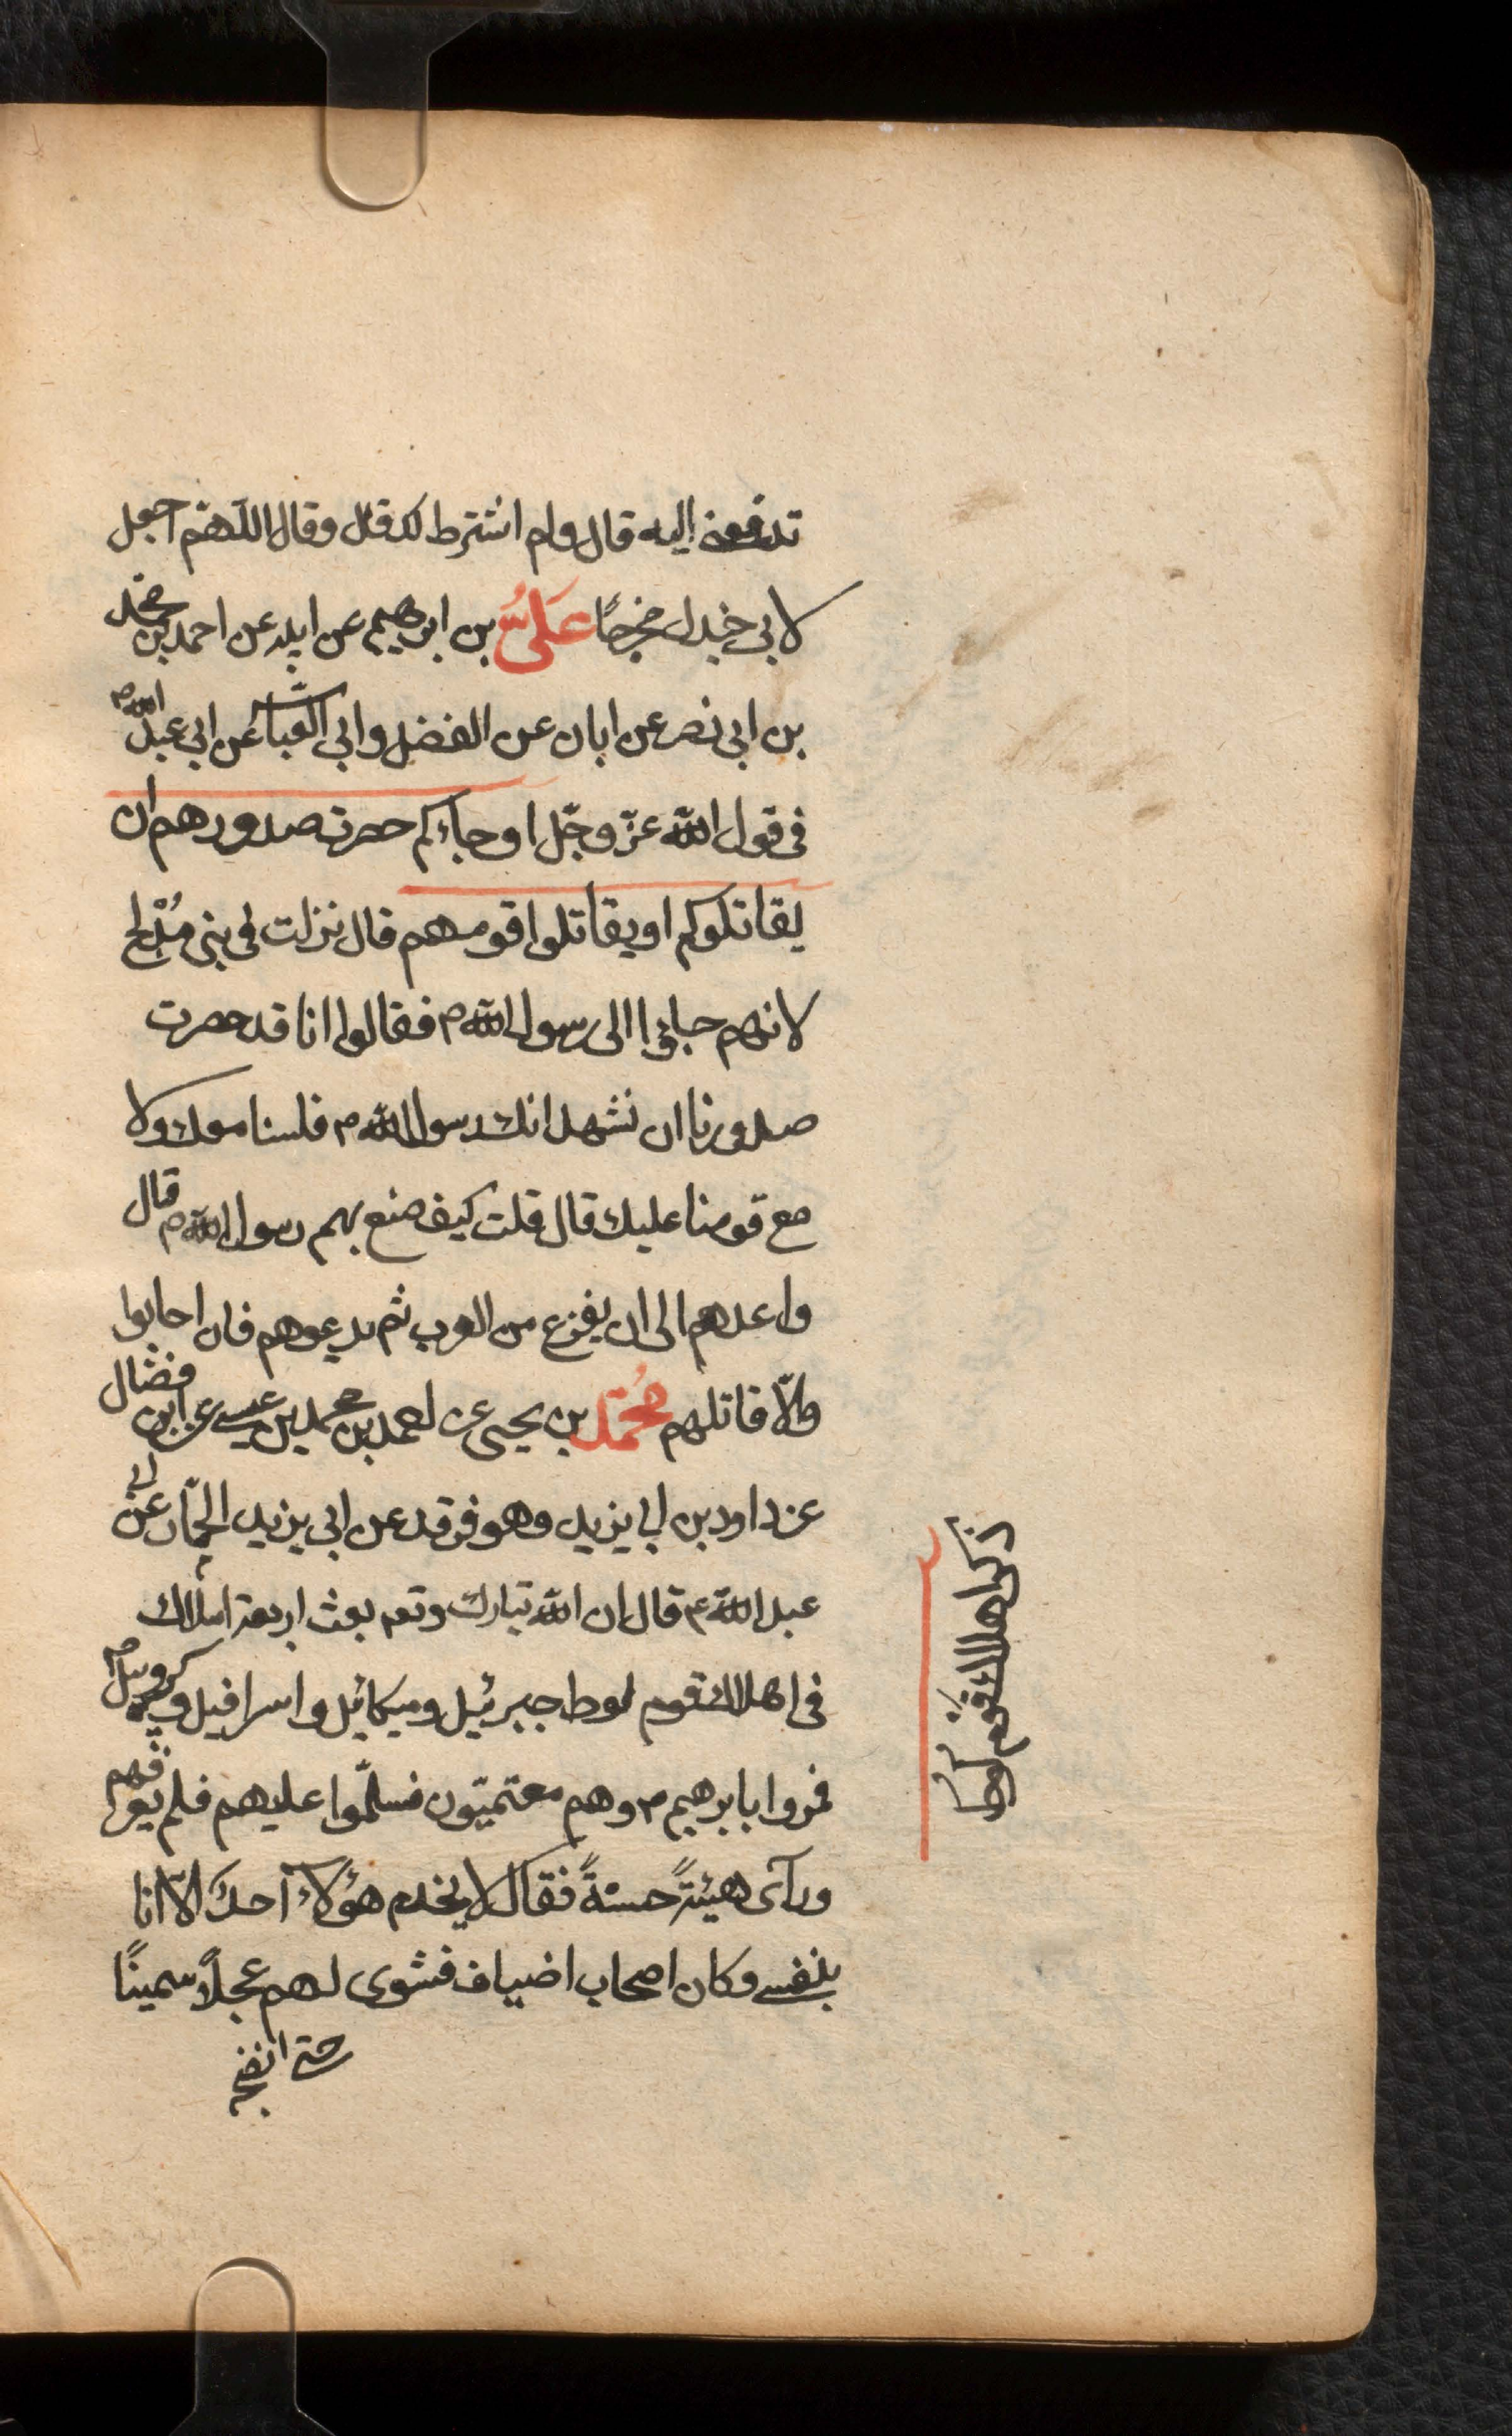 تدفعونه اليه قال ولم اشترط لك قال وقال اللهم اجعل
لابي جندل مخرجًا عليُّ بن ابرهيم عن ابيه عن احمد بن محمد
بن ابي نصر عن ابان عن الفضل وابي العباس عن ابي عبد الله ع
في قول الله عزّ وجلّ او جاءكم حصرت صدورهم ان
يقاتلوكم او يقاتلوا قومهم قال نزلت في بني مُدلج
لانهم جاؤا الى رسول الله ص فقالوا انا قد حصرت
صدورنا ان نشهد انك رسول الله ص فلسنا معك ولا
مع قومنا عليك قال قلت كيف صنع بهم رسول الله ص قال
واعدهم الى ان يفرغ من العرب ثم يدعوهم فان اجابوا
والّا قاتلهم مُحمّد بن يحيى عن احمد بن محمد بن عيسى عن ابن فضّال
عن داود بن ابي يزيد وهو فرقد عن ابي يزيد الحمّار عن ابي
عبد الله ع قال ان الله تبارك وتعم بعث اربعة املاك
في اهلاك قوم لوط جبرئيل وميكائيل واسرافيل وكروبيل ع
فمروا بابرهيم ع وهم معتمّون فسلّموا عليهم فلم يعرفهم
ورآى هيئةً حسنةً فقال لا يخدم هؤلاء احدٌ الّا انا
بنفسي وكان اصحاب اضياف فشوى لهم عجلًا سمينًا
حتى انضجه
ذكر اهلاك قوم لوط